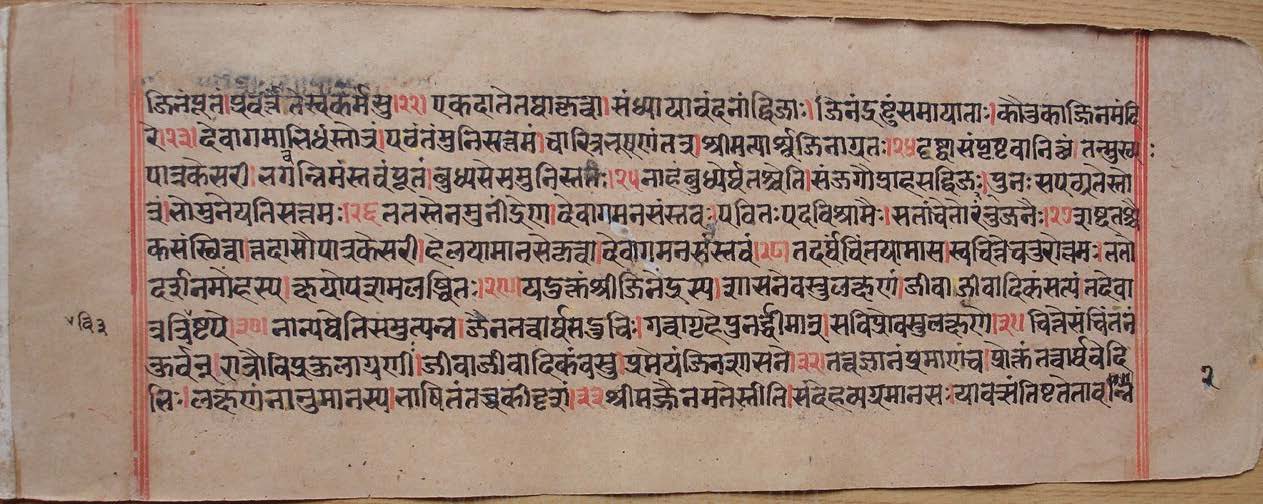 जिनंपूतं।प्रवर्त्तंतेस्वकर्मसु।२२।एकदातेतथाकृत्वा।संध्यायावंदनांद्विजाः।जिनंद्रष्टुंसमायाताः।कौत्रकाज्जिनमंदि
रे।२३।देवागमानिधंस्तोत्रं।पठंतंमुनिसत्तमं।चारित्रभूषणंतत्र।श्रीमत्पार्श्वजिनाग्रतः।२४।दृष्ट्वासंपृष्टवानित्थं।तन्मुख्यः
पात्रकेसरी।भगवन्निमंस्तवंपूतं।बुध्यसेसमुनिस्ततः।२५।नाहंबुध्येर्थतश्चेति।संजगौप्राहसद्विजः।पुनःसपठ्यतेस्तो
त्रं।भोमुनेयतिसत्तमः।२६।ततस्तेनमुनींद्रेण।देवागमनसंस्तवः।पठितःपदविश्रामैः।सतांचेतोरंनुजनैः।२७।राष्टतश्चै
कसंस्थित्वा।त्तदासौपात्रकेसरी।हेलयामानसेकृत्वा।देवागमनसंस्तवं।२८।तदर्थंचिंतयामास।स्वचित्तेचतुरोत्तमः।ततो
दर्शनमोहस्य।क्षयोपशमलब्धितः।२९।यदुक्तंश्रीजिनेंद्रस्य।शासनेवस्तुलक्षणं।जीवाजीवादिकंसत्यं।तदेवा
त्रत्रिष्टपे।३०।नान्यथेतिसमुत्पन्न।जैनतत्वार्थसद्रुचिः।गत्वागृहेपुनर्द्धीमान्।सविप्रोवस्तुलक्षणं।३१।चित्तेसंचिंतनं
कुर्वन्।रात्रौविप्रकुलाग्रणीः।जीवाजीवादिकंवस्तु।प्रमेयंजिनशासने।३२।तत्वज्ञानंप्रमाणंच।प्रोक्तंतत्वार्थवेदि
भिः।लक्षणंनानुमानस्य।भाषितंतच्चकीदृशं।३३।श्रीमज्जैनमतेस्तीति।संदेहव्यग्रमानसः।यावत्संतिष्टतेताव
२